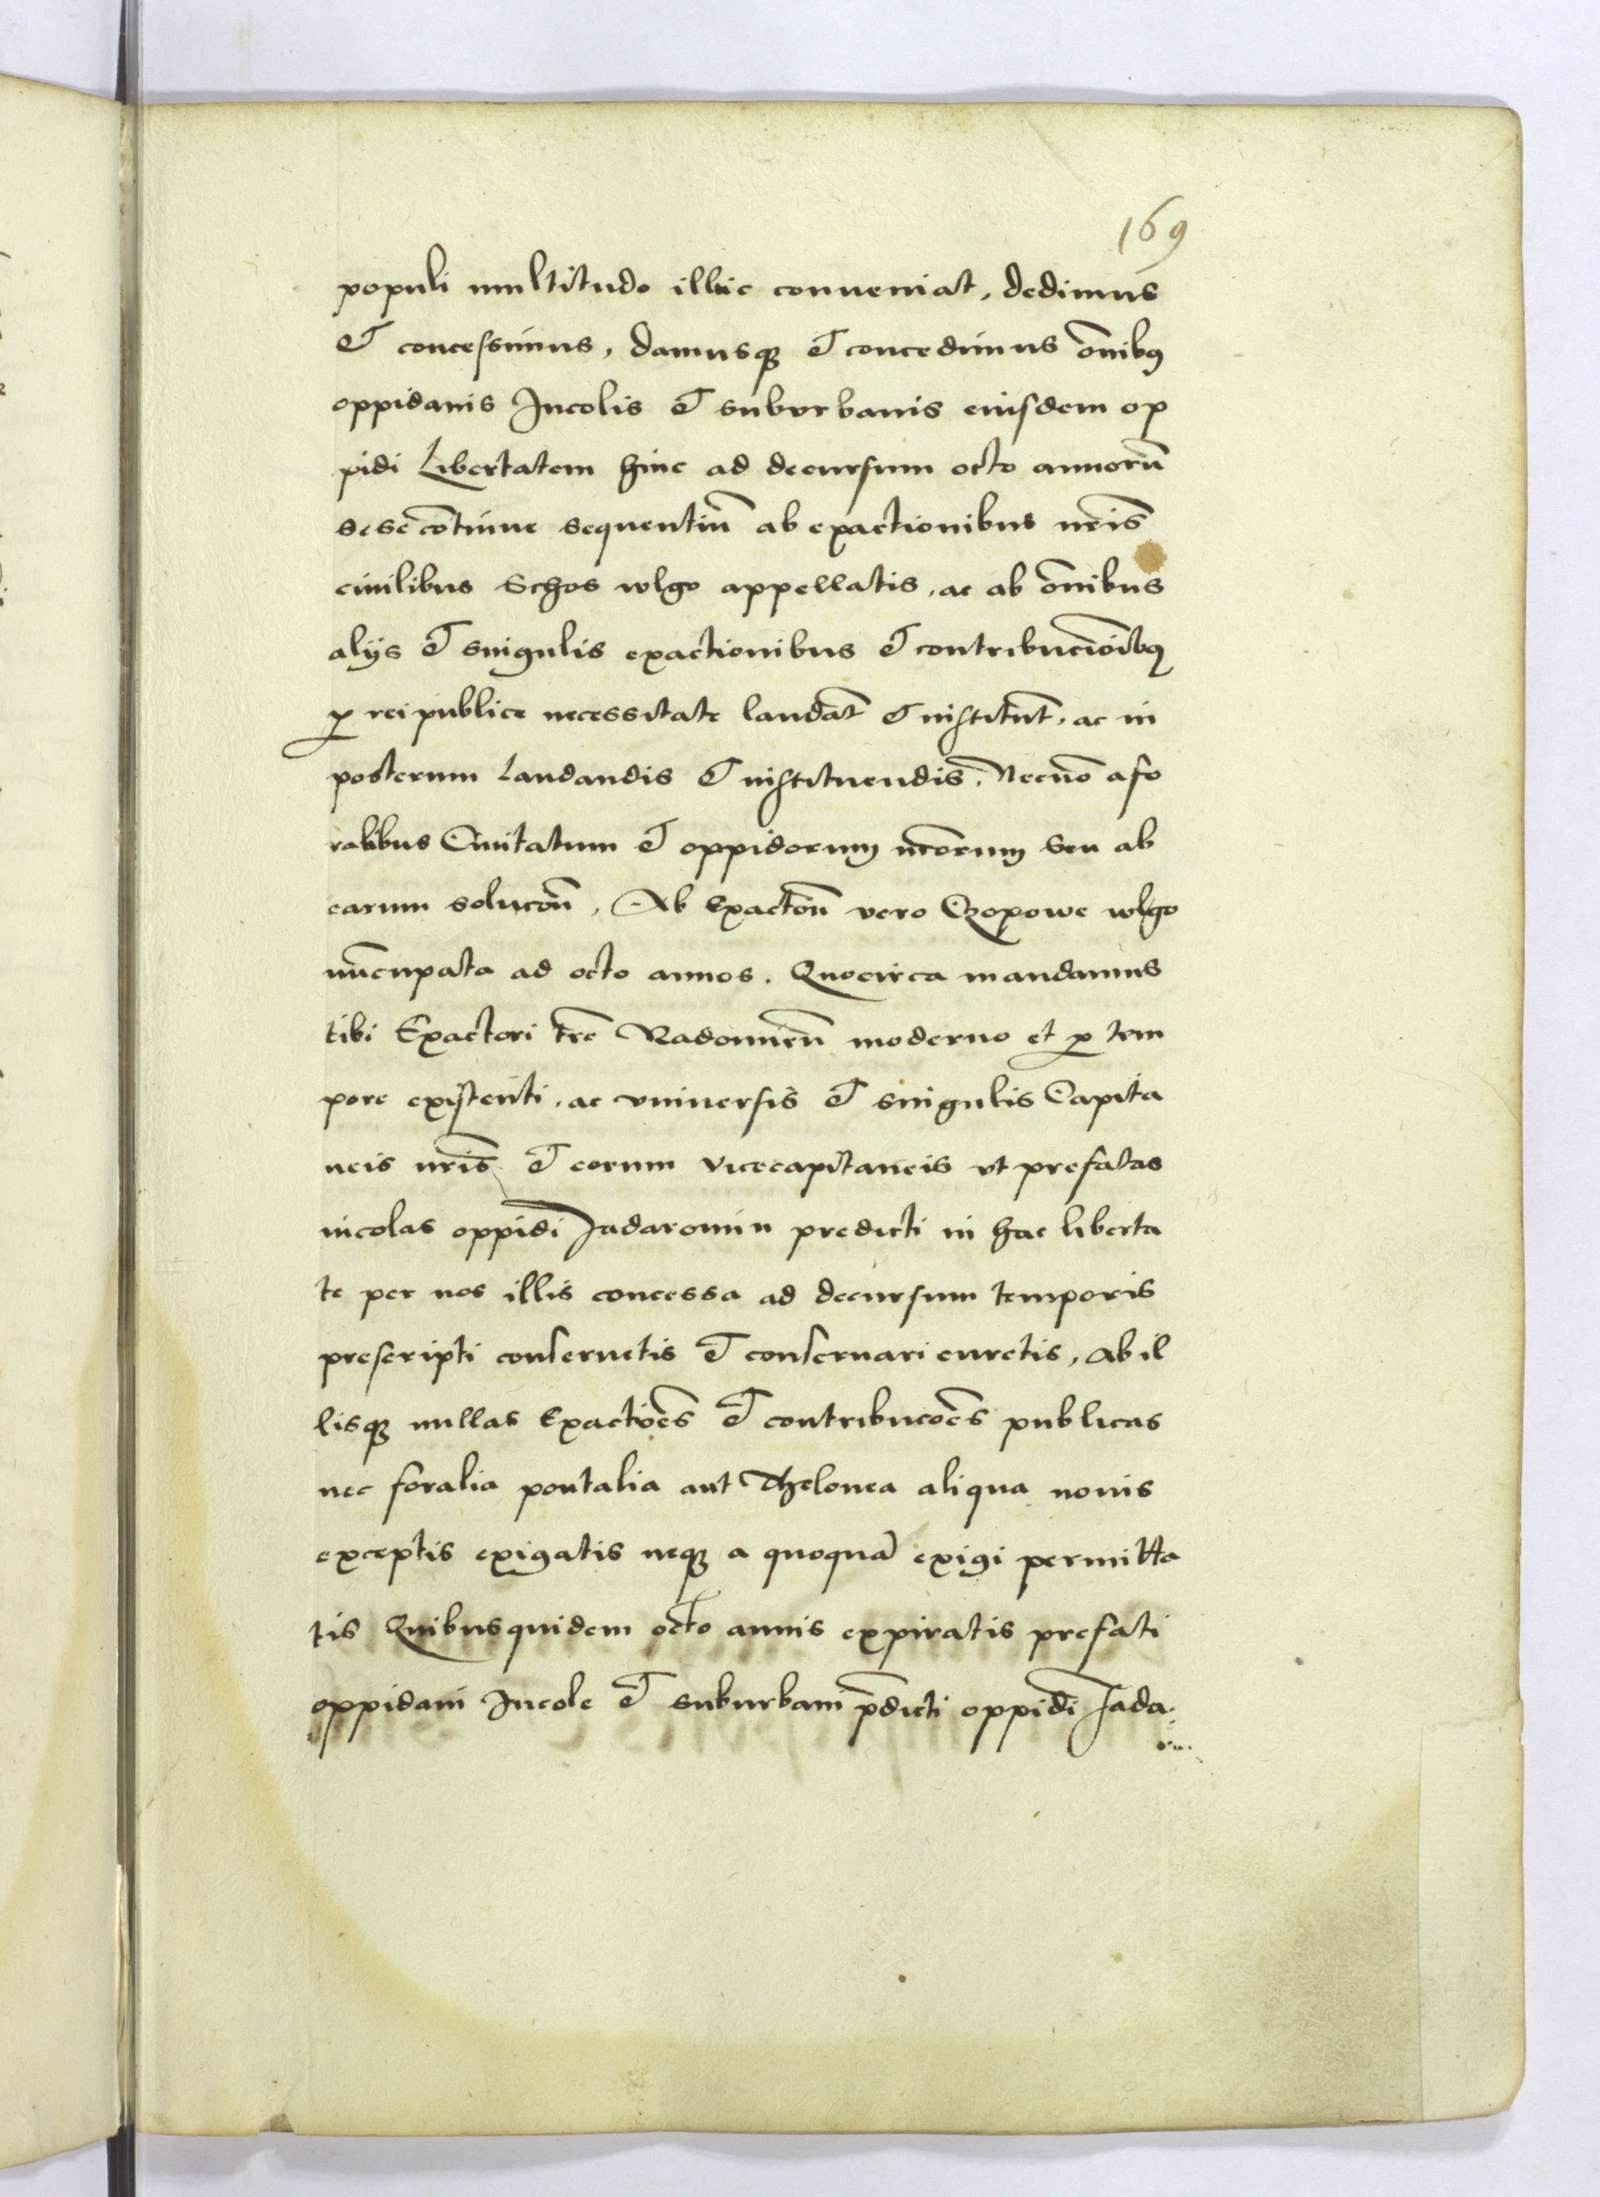 169
populi multitudo illuc conueniat, dedimus
et concessimus, damusq et concedimus om̄ibq
oppidanis Incolis et suburbanis eiusdem op
pidi Libertatem hinc ad decursum octo annorū
sese cōtinue sequentiū ab exactionibus nr̄is
ciuilibus Schos wlgo appellatis, ac ab om̄ibus
alijs et singulis exactionibus et contribuciōibq
p rei publice necessitate laudat̄ et institut̄, ac in
posterum laudandis et instituendis. Necnō a fo
ralibus Ciuitatum et oppidorum nr̄orum seu ab
earum solucōn̄, Ab Exactōn̄ vero Czopowe wlgo
nūcupata ad octo annos. Quocirca mandamus
tibi Exactori tr̄e Radomien̄ moderno et p tem
pore existenti, ac vniuersis et singulis Capita
neis nr̄is et eorum vicecapitaneis vt prefatas
incolas oppidi Jadaromin predicti in hac liberta
te per nos illis concessa ad decursum temporis
prescripti conseruetis et conseruari curetis, Ab il
lisq nullas Exactiōes et contribucōes publicas
nec foralia pontalia aut Thelonea aliqua nouis
exceptis exigatis neq a quoquā exigi permitta
tis Quibusquidem octo annis expiratis prefati
oppidani Incole et suburbani p̄dicti oppidi Jada